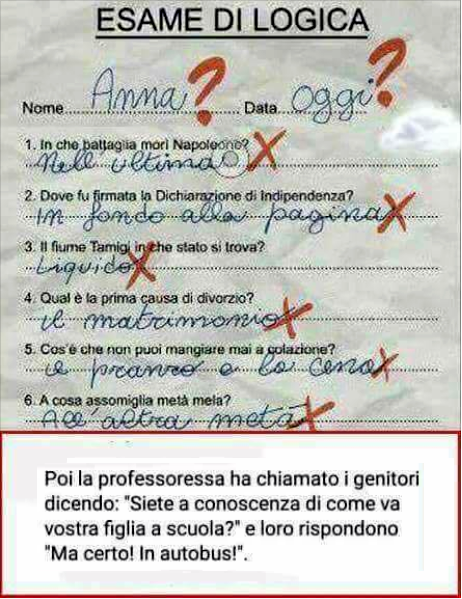 ESAME DI LOGICA
Nome Anna? Data Oggi?
1. In che battaglia morì Napoleone?
Nell'ultima
2. Dove fu firmata la Dichiarazione di Indipendenza?
In fondo alla pagina
3. Il fiume Tamigi in che stato si trova?
Liquido
4. Qual è la prima causa di divorzio?
il matrimonio
5. Cos'è che non puoi mangiare mai a colazione?
il pranzo e la cena
6. A cosa assomiglia metà mela?
All'altra metà
Poi la professoressa ha chiamato i genitori
dicendo: "Siete a conoscenza di come va
vostra figlia a scuola?" e loro rispondono
"Ma certo! In autobus!".